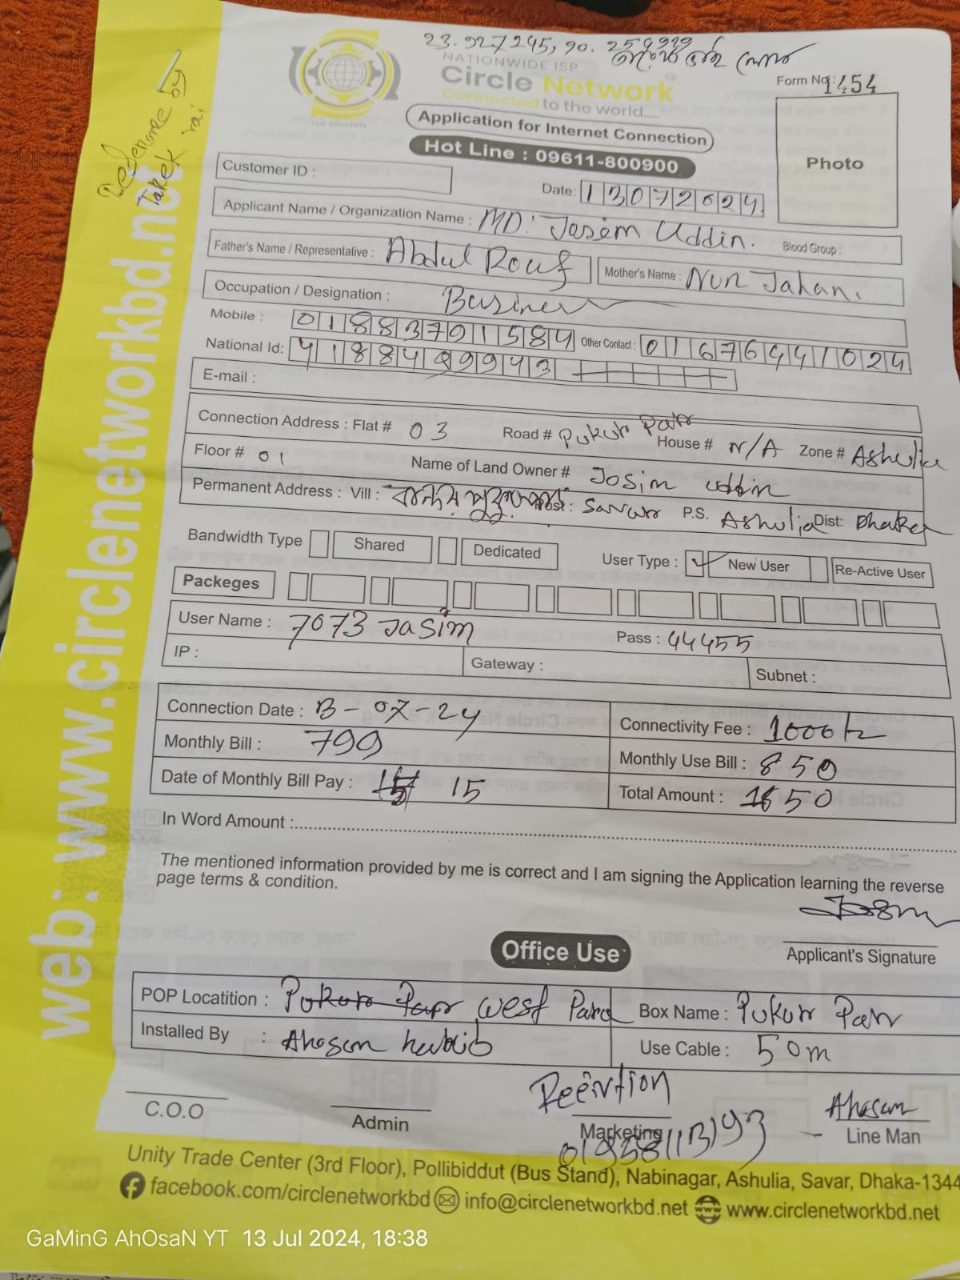 23.927295, 90.
NATIONWIDE ISP
Circle Network
Connected to the world....
Form No: 1454
Application for Internet Connection
Hot Line : 09611-800900
Photo
Referance by
Tarek
Customer ID :
Date: 13072024
Applicant Name / Organization Name : MD: Jasim Uddin. Blood Group :
Father's Name / Representative : Abdul Rouf Mother's Name : Nur Jahan.
Occupation / Designation : Business
Mobile : 01883791584 Other Contact : 01676441024
National Id: 4188499943
E-mail :
Connection Address : Flat # 03 Road # Pukur Parr House # N/A Zone # Ashulia
Floor # 01 Name of Land Owner # Josim uddin
Permanent Address : Vill : Post: Savar P.S. Ashulia Dist: Dhaka
Bandwidth Type Shared Dedicated User Type : New User Re-Active User
Packeges
User Name : 7073 Jasim Pass : 44455
IP : Gateway : Subnet :
Connection Date : 13-07-24 Connectivity Fee : 1000 tk
Monthly Bill : 799 Monthly Use Bill : 850
Date of Monthly Bill Pay : 15 Total Amount : 1850
In Word Amount :
The mentioned information provided by me is correct and I am signing the Application learning the reverse
page terms & condition.
Applicant's Signature
Office Use
POP Locatition : West Para Box Name : Pukur Parr
Installed By : Ahosan habib Use Cable : 50m
C.O.O Admin Marketing Ahosan Line Man
Unity Trade Center (3rd Floor), Pollibiddut (Bus Stand), Nabinagar, Ashulia, Savar, Dhaka-1344
facebook.com/circlenetworkbd info@circlenetworkbd.net www.circlenetworkbd.net
web: www.circlenetworkbd.net
GaMinG AhOsaN YT 13 Jul 2024, 18:38